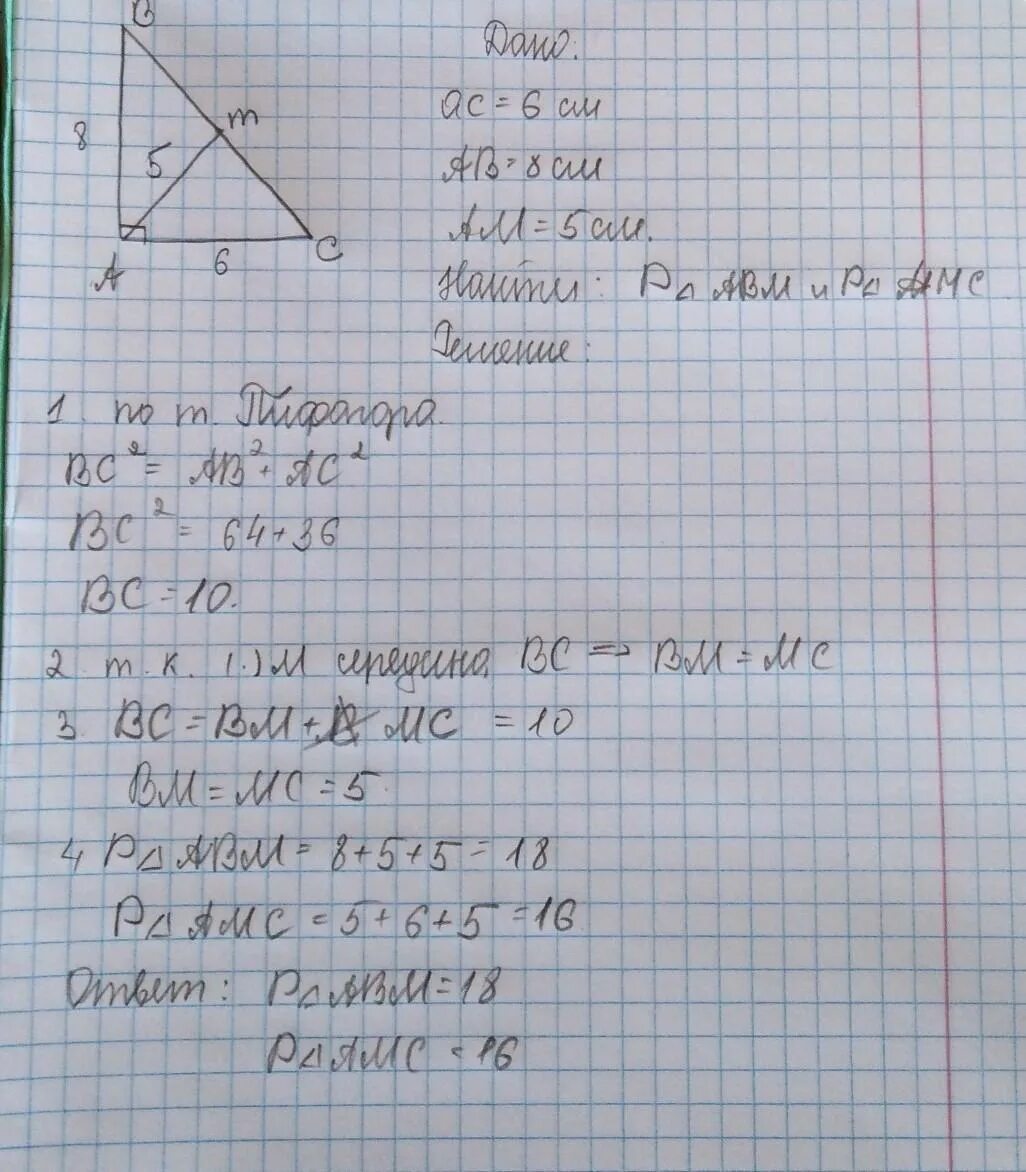 B
Дано:
m
ac = 6 см
8
5
AB = 8 см
AM = 5 см.
A
6
C
Найти: P△ ABM и P△ AMC
Решение:
1. по т. Пифагора.
BC² = AB² + AC²
BC² = 64+36
BC = 10.
2 т.к. (.) M середина BC => BM = MC
3. BC = BM + MC = 10
BM = MC = 5
4 P△ ABM = 8+5+5 = 18
P△ AMC = 5+6+5 = 16
Ответ: P△ ABM = 18
P△ AMC = 16